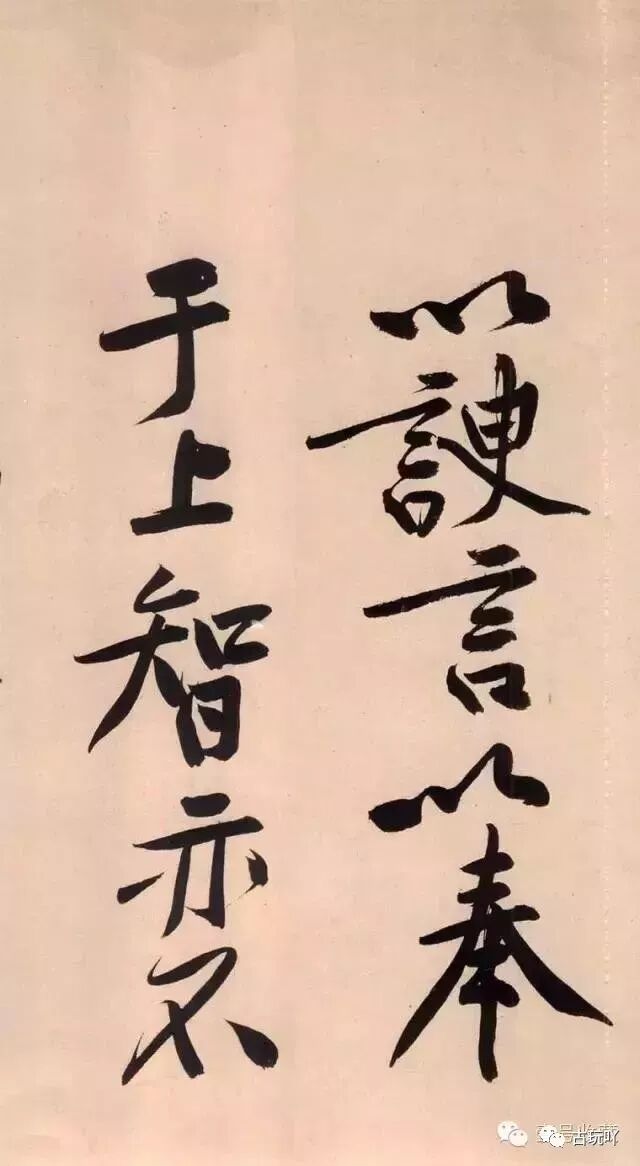 以諛言以奉
于上智亦不
古玩吖